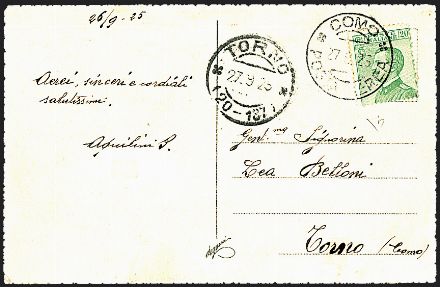 26/9-25
Aerei, sinceri e cordiali
salutissimi.
Aquilini S.
TORNO
27.9.25
(20-137)
COMO
27
Gent.ma Signorina
Lea Belloni
Torno (Como)